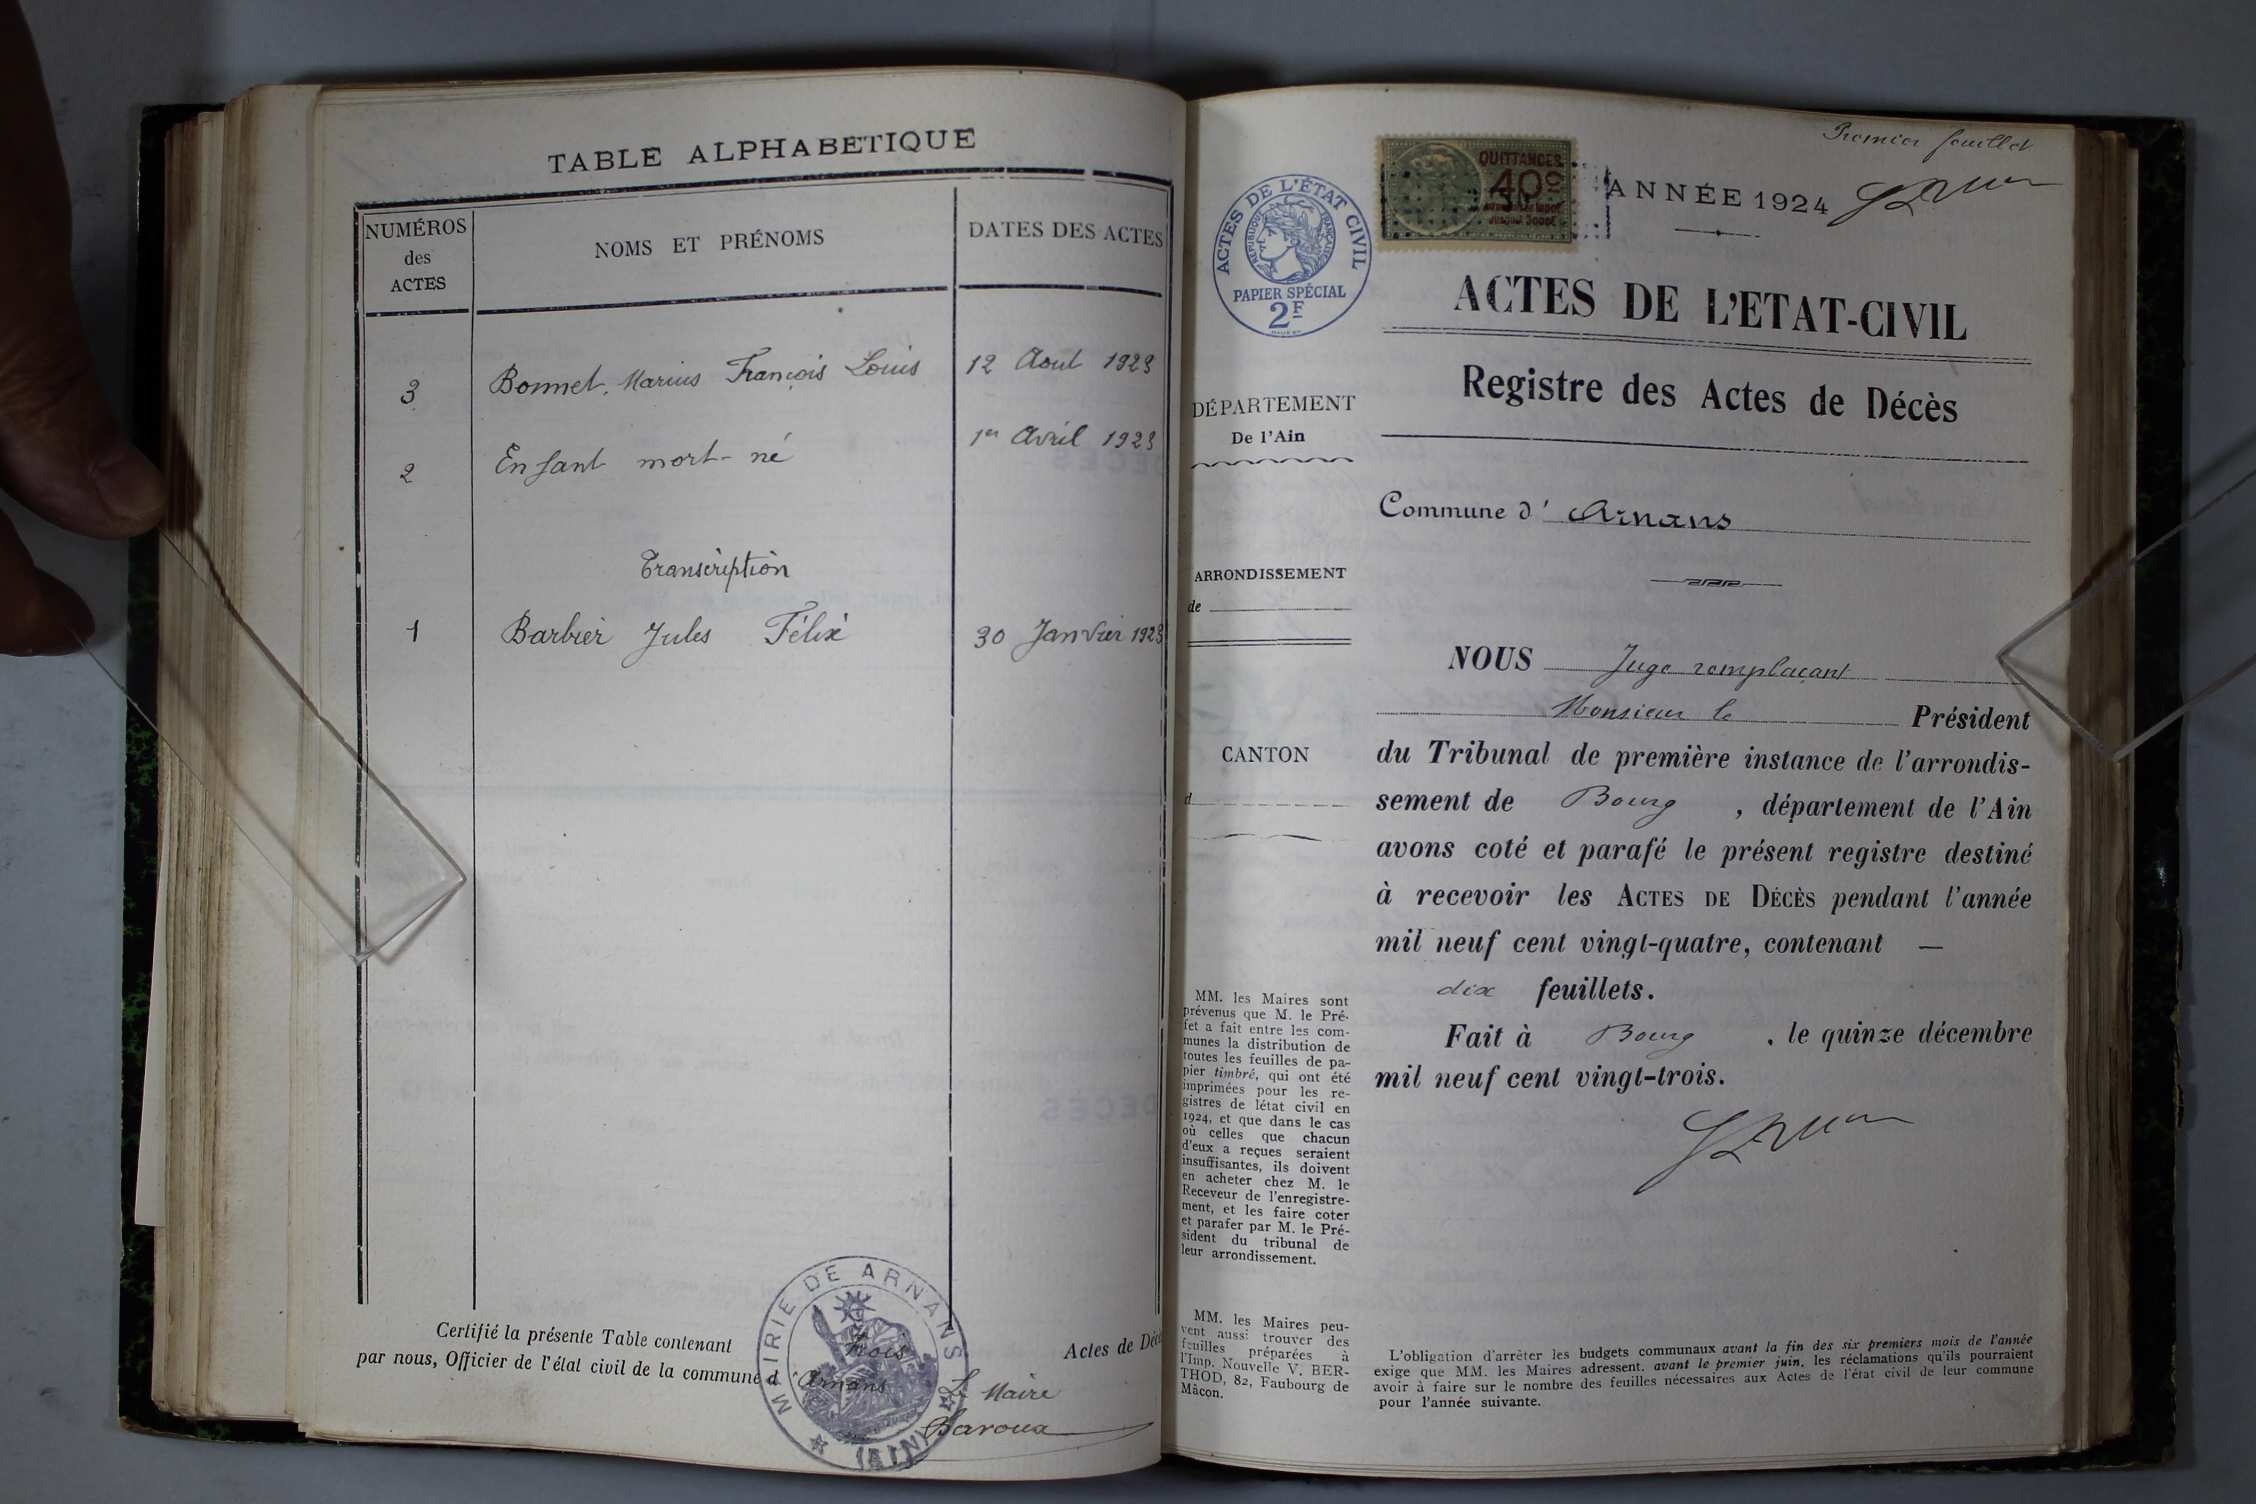 TABLE ALPHABÉTIQUE
NUMÉROS
des
ACTES
NOMS ET PRÉNOMS
DATES DES ACTES
3 Bonnet, Marius François Louis 12 Aout 1923
2 Enfant mort-né 1er Avril 1923
Transcription
1 Barbier Jules Félix 30 Janvier 1923
Certifié la présente Table contenant trois Actes de Décè
par nous, Officier de l'état civil de la commune d'Arnans
Le Maire
Baroux
MAIRIE DE ARNANS
(AIN)
Premier feuillet
ACTES DE L'ÉTAT CIVIL
RÉPUBLIQUE FRANÇAISE
PAPIER SPÉCIAL
2F
QUITTANCES
40c
ANNÉE 1924
ACTES DE L'ETAT-CIVIL
Registre des Actes de Décès
DÉPARTEMENT
De l'Ain
Commune d' Arnans
ARRONDISSEMENT
de
CANTON
d
NOUS Juge remplaçant
Monsieur le Président
du Tribunal de première instance de l'arrondis-
sement de Bourg, département de l'Ain
avons coté et parafé le présent registre destiné
à recevoir les ACTES DE DÉCÈS pendant l'année
mil neuf cent vingt-quatre, contenant —
dix feuillets.
Fait à Bourg, le quinze décembre
mil neuf cent vingt-trois.
MM. les Maires sont
prévenus que M. le Pré-
fet a fait entre les com-
munes la distribution de
toutes les feuilles de pa-
pier timbré, qui ont été
imprimées pour les re-
gistres de létat civil en
1924, et que dans le cas
où celles que chacun
d'eux a reçues seraient
insuffisantes, ils doivent
en acheter chez M. le
Receveur de l'enregistre-
ment, et les faire coter
et parafer par M. le Pré-
sident du tribunal de
leur arrondissement.
MM. les Maires peu-
vent aussi trouver des
feuilles préparées à
l'Imp. Nouvelle V. BER-
THOD, 82, Faubourg de
Mâcon.
L'obligation d'arrêter les budgets communaux avant la fin des six premiers mois de l'année
exige que MM. les Maires adressent, avant le premier juin, les réclamations qu'ils pourraient
avoir à faire sur le nombre des feuilles nécessaires aux Actes de l'état civil de leur commune
pour l'année suivante.